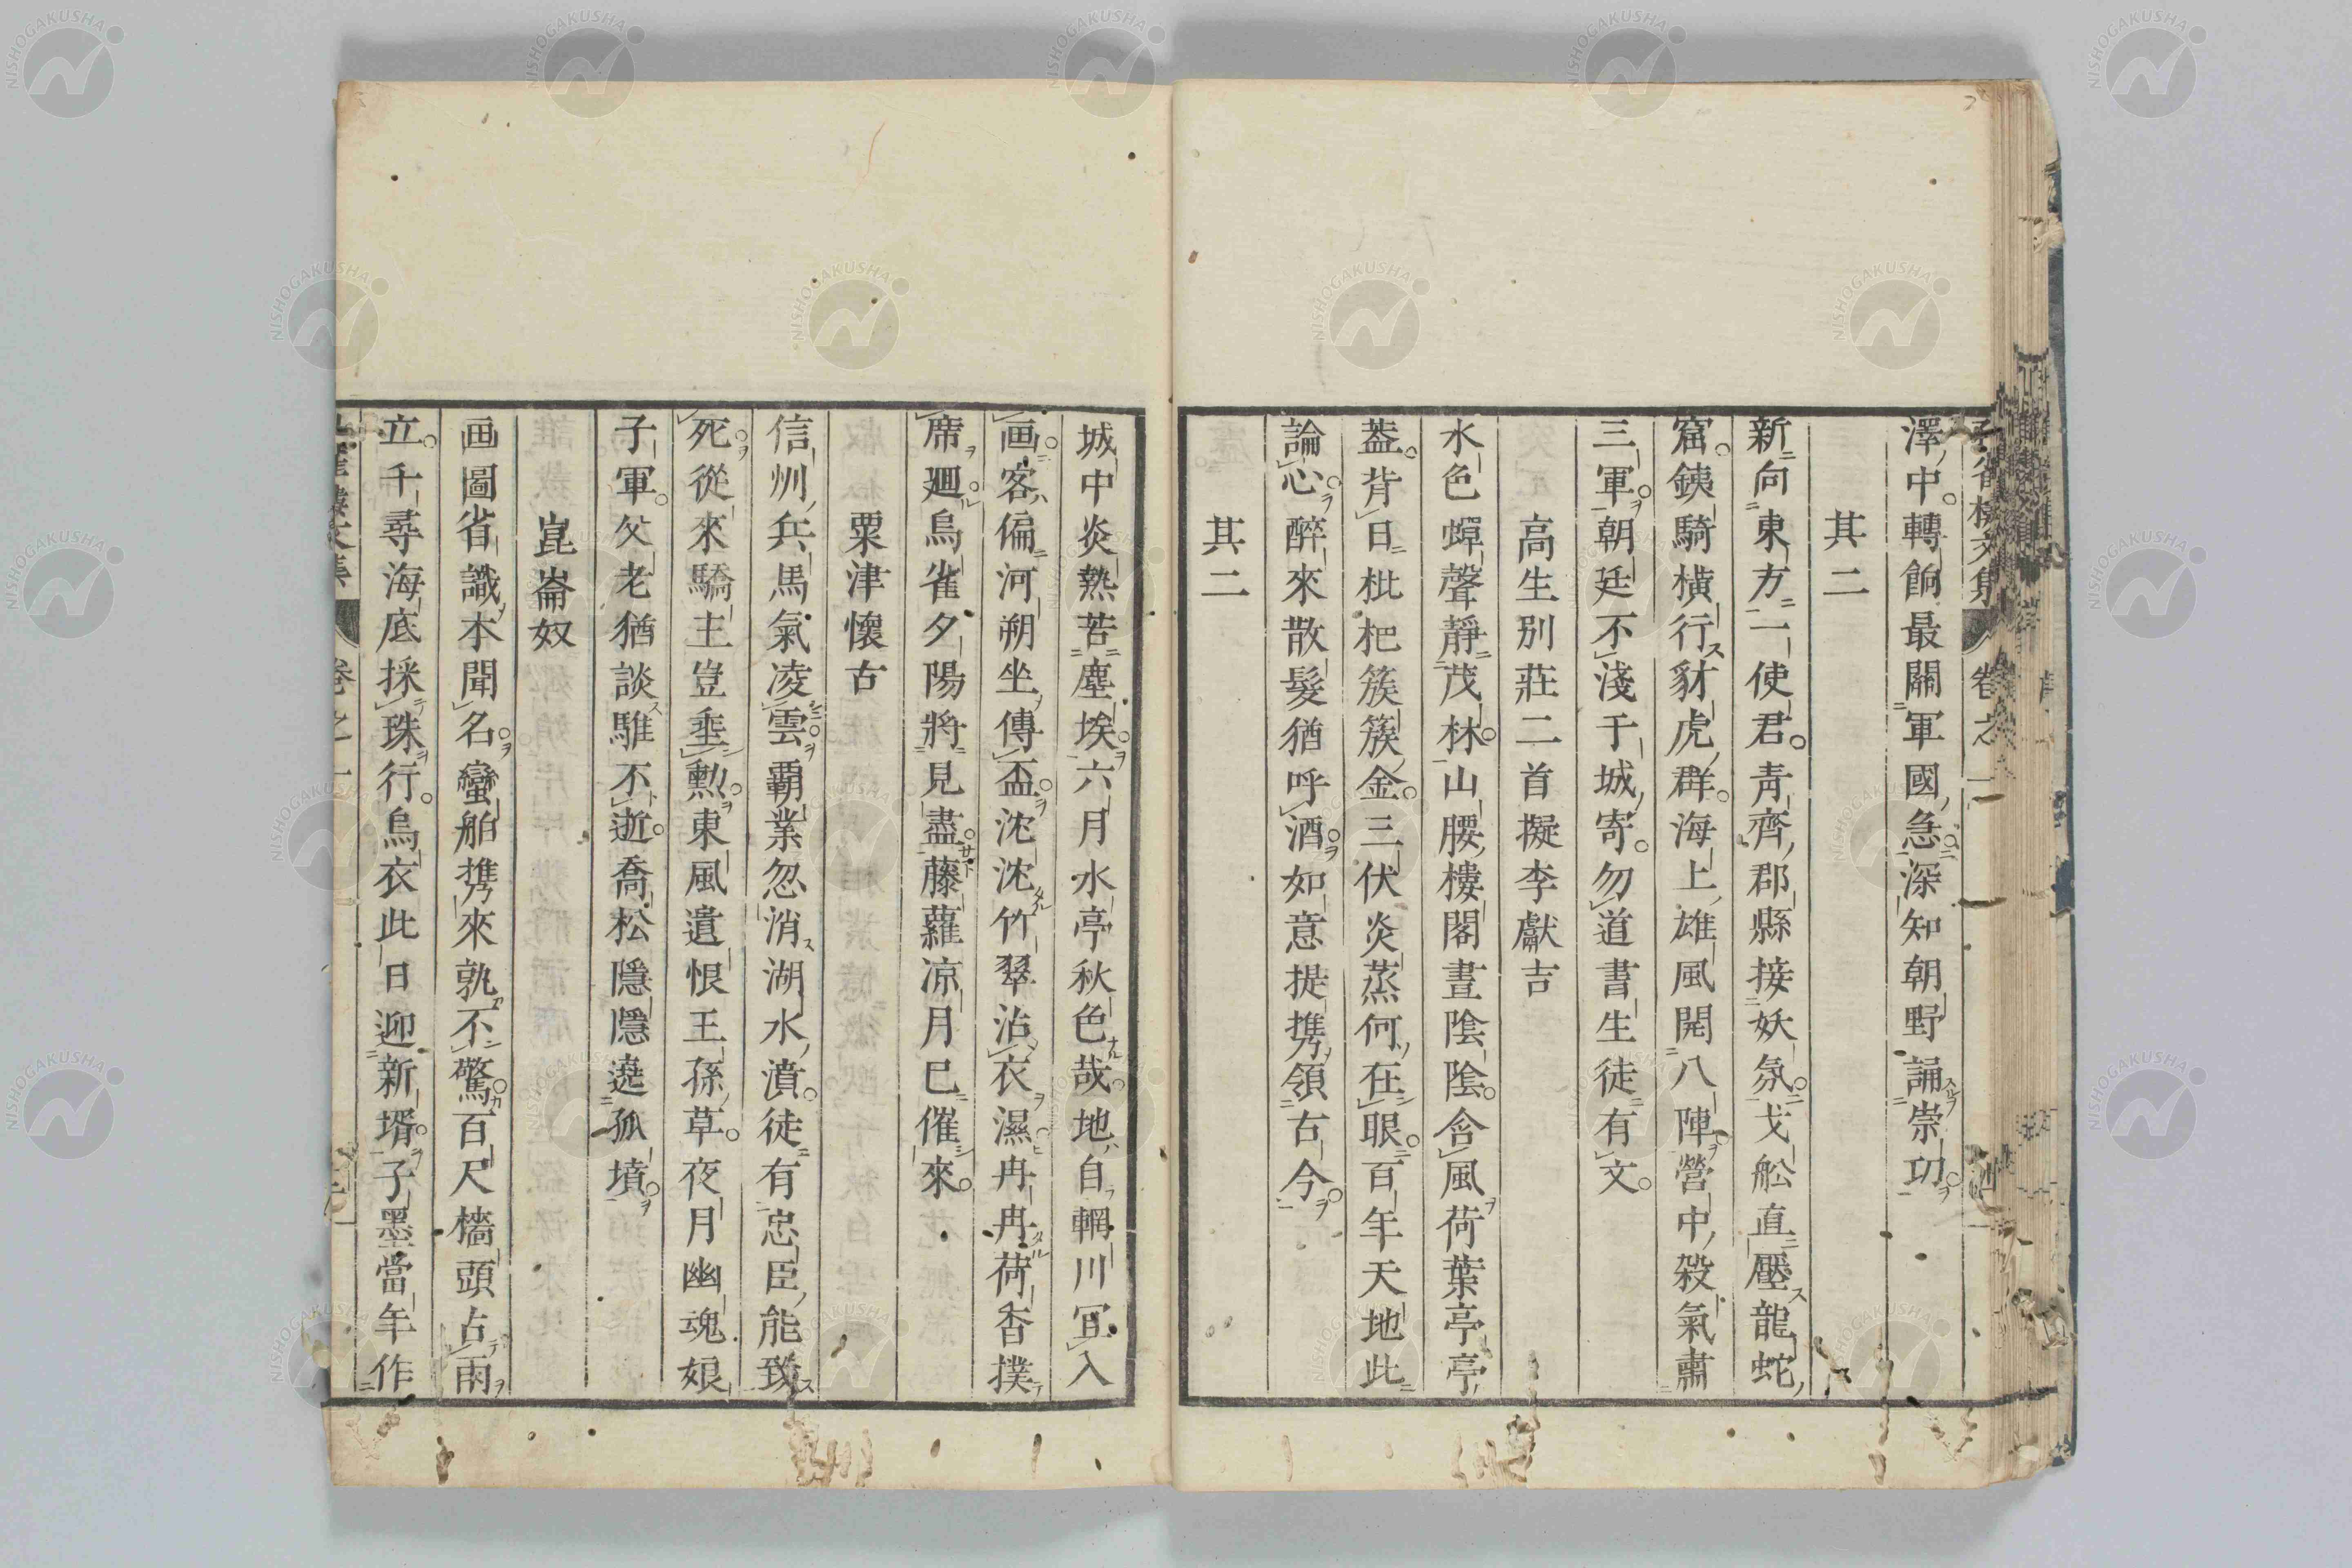 澤中轉餉最關軍國急深知朝野誦崇功
其二
新向東方一使君青齊郡縣接妖氛戈舩直壓龍蛇
窟鐵騎橫行豺虎群海上雄風開八陣營中殺氣肅
三軍朝廷不淺干城寄勿道書生徒有文
高生別莊二首擬李獻吉
水色蟬聲靜茂林山腰樓閣晝陰陰含風荷葉亭亭
蓋背日枇杷簇簇金三伏炎蒸何在眼百年天地此
論心醉來散髮猶呼酒如意提携領古今
其二
城中炎熱苦塵埃六月水亭秋色哉地自輞川宜入
画客偏河朔坐傳盃沈沈竹翠沾衣濕冉冉荷香撲
席廻烏雀夕陽將見盡藤蘿凉月已催來
粟津懷古
信州兵馬氣凌雲覇業忽消湖水濆徒有忠臣能致
死從來驕主豈垂勲東風遺恨王孫草夜月幽魂娘
子軍父老猶談騅不逝喬松隱隱遶孤墳
崑崙奴
画圖省識本聞名蠻舶携來孰不驚百尺檣頭占雨
立千尋海底採珠行烏衣此日迎新壻子墨當年作
卷之一
NISHOGAKUSHA